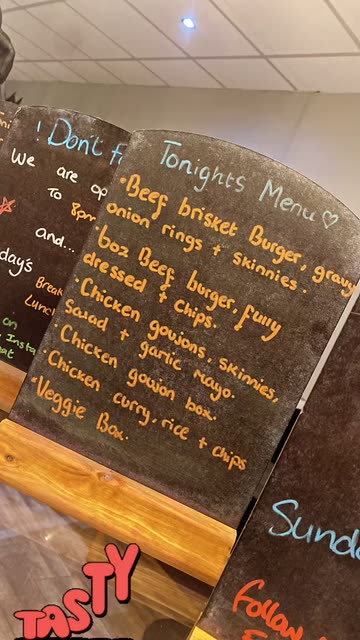 ! Don't
We are
TO 8pm
and...
Tonights Menu ♡
• Beef brisket Burger, gravy
onion rings + skinnies.
• 6oz Beef burger, fully
dressed + chips.
• Chicken goujons, skinnies,
Salad + garlic mayo.
• Chicken goujon box.
• Chicken curry, rice + chips
• Veggie Box.
on
Follow
TASTY